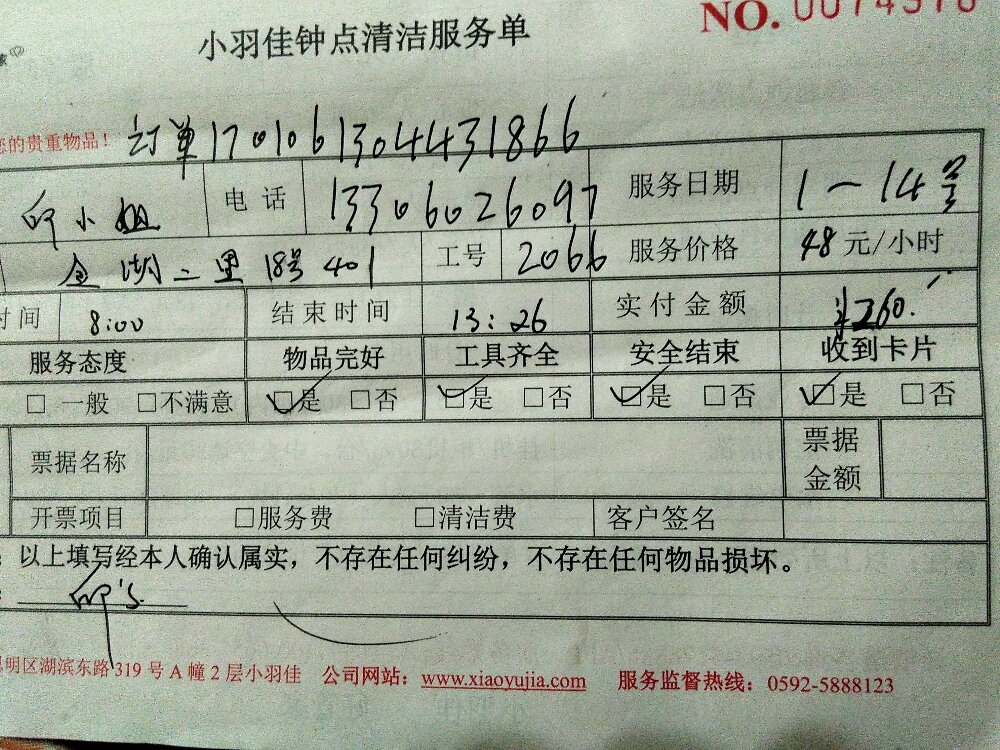 小羽佳钟点清洁服务单
NO.
您的贵重物品! 订单1701061304431866
小姐 电话 13306026097 服务日期 1-14号
金湖二里18号401 工号 2066 服务价格 48元/小时
时间 8:00 结束时间 13:26 实付金额 ¥260.
服务态度 物品完好 工具齐全 安全结束 收到卡片
□一般 □不满意 □是 □否 □是 □否 □是 □否 □是 □否
票据名称 票据金额
开票项目 □服务费 □清洁费 客户签名
：以上填写经本人确认属实，不存在任何纠纷，不存在任何物品损坏。
明区湖滨东路319号A幢2层小羽佳 公司网站：www.xiaoyujia.com 服务监督热线：0592-5888123